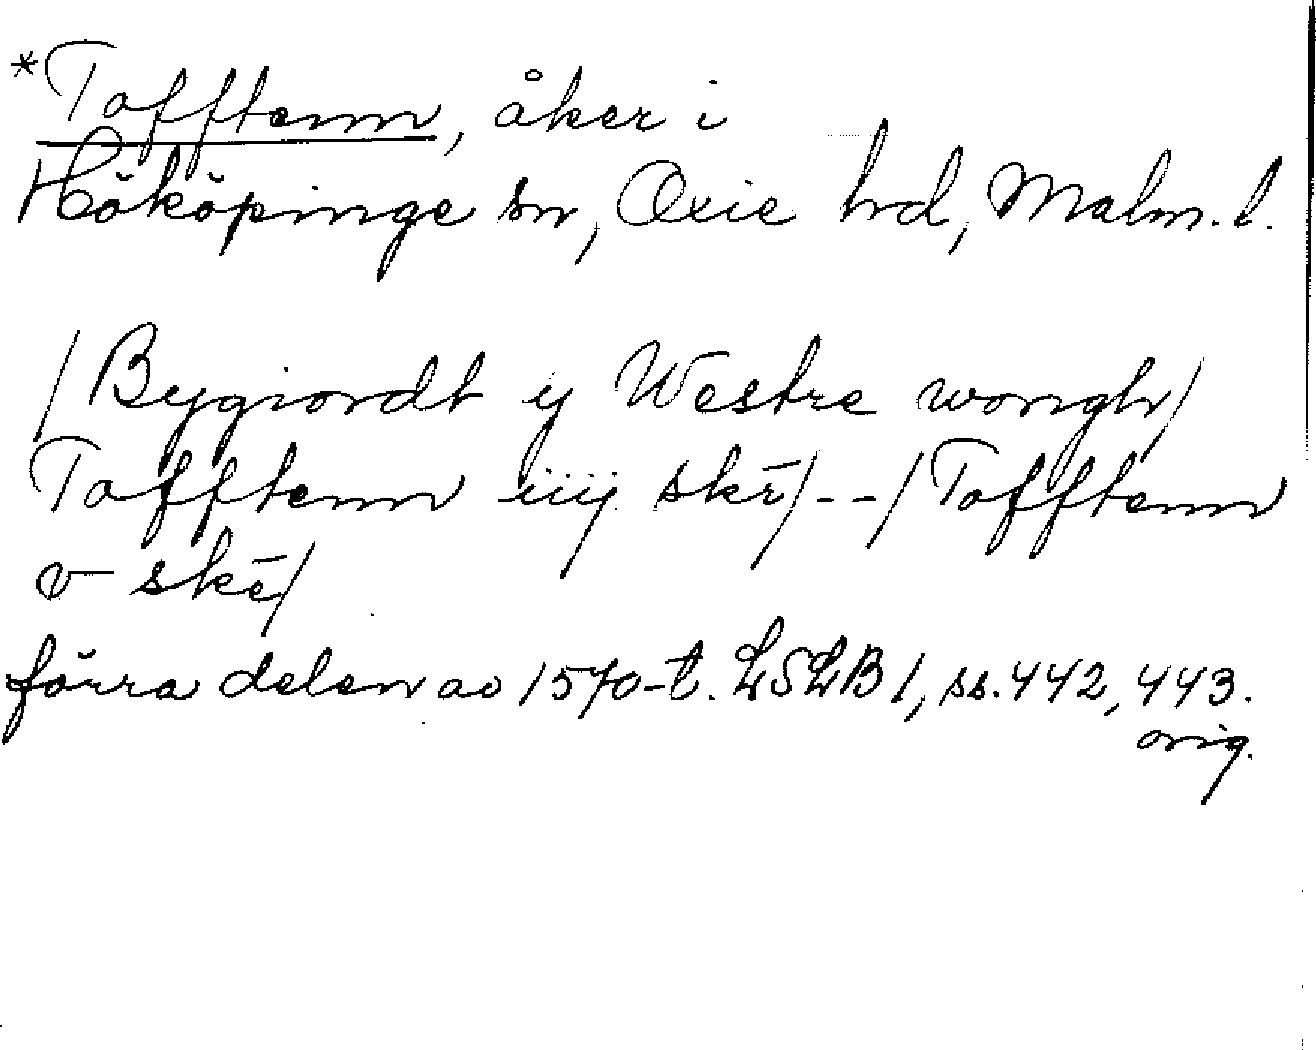 *Tofftenn, åker i
Hököpinge sn, Oxie hd, Malm. l.
/Bygiordt y Westre wongh/
Tofftenn iiij skē/--/Tofftenn
v skē/
förra delen av 1570-t. LSLB 1, ss. 442, 443.
orig.